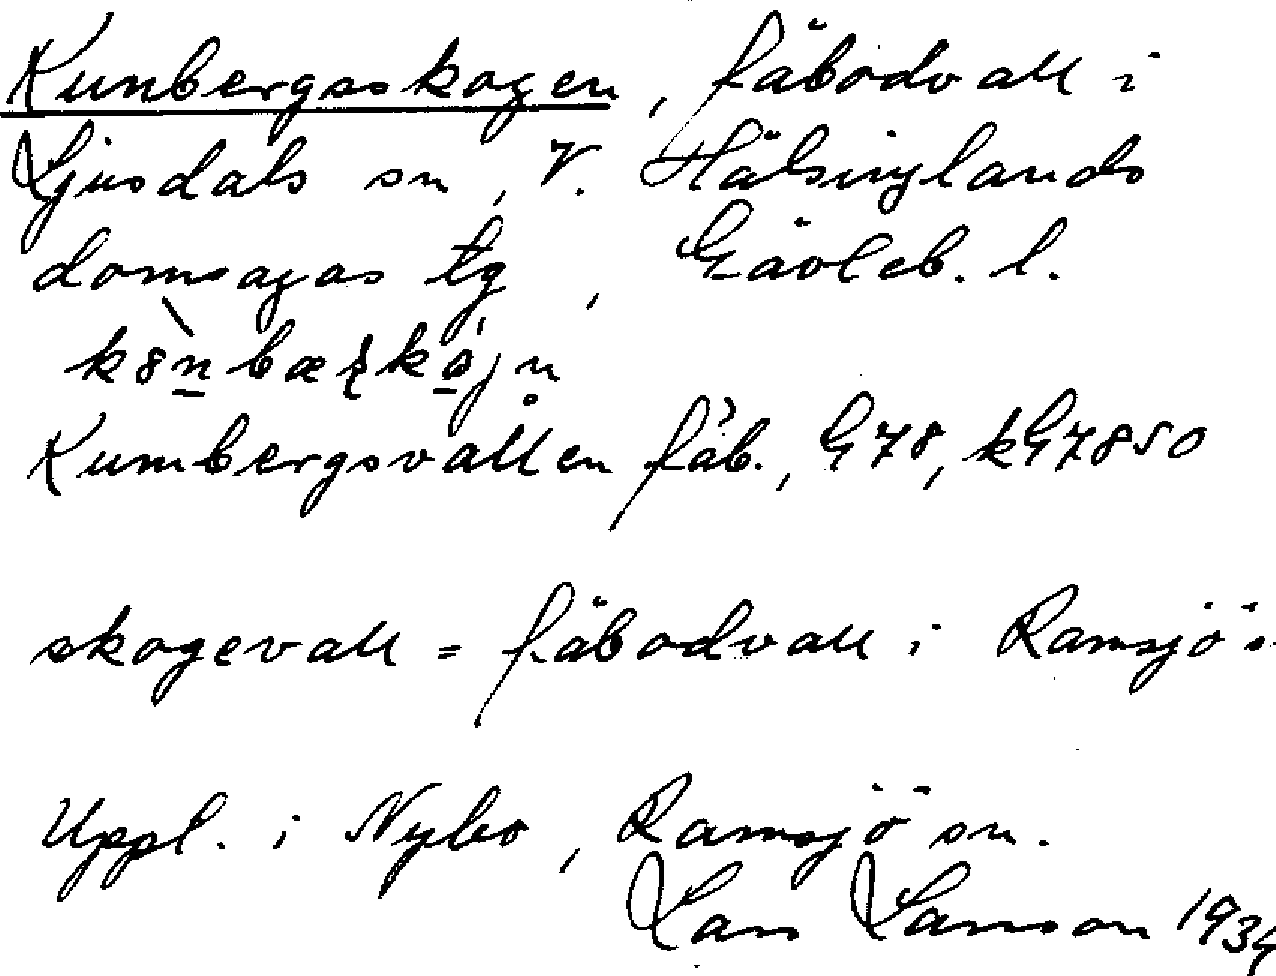 Kunbergsskogen, fäbodvall i
Ljusdals sn, V. Hälsinglands
domsagas tg, Gävleb. l.
Kumbergsvallen fäb., G78, kG7850
skogevall = fäbodvall i Ramsjö s
Uppl. i Nybo, Ramsjö sn.
Lars Larsson 1934